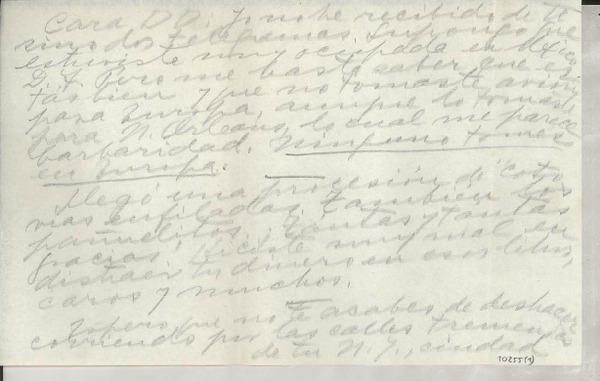 Cara D D. Yo no he recibido de ti
sino dos telegramas. Supongo que
estuviste muy ocupada en México
D. F. Pero me basta saber que es
tás bien y que no tomaste avión
para Europa, aunque lo tomas
para N. Orleans, lo cual me parece
barbaridad. Ninguno tomes
en Europa.
Llegó una procesión de
vias enfiladas. También los
pañuelitos. Tantas y tantas
gracias. Hiciste muy mal en
distraer tu dinero en esos libros,
caros y muchos.
Espero que no te acabes de deshacer
corriendo por las calles tremendas
de tu N. Y., ciudad
10255 (1)